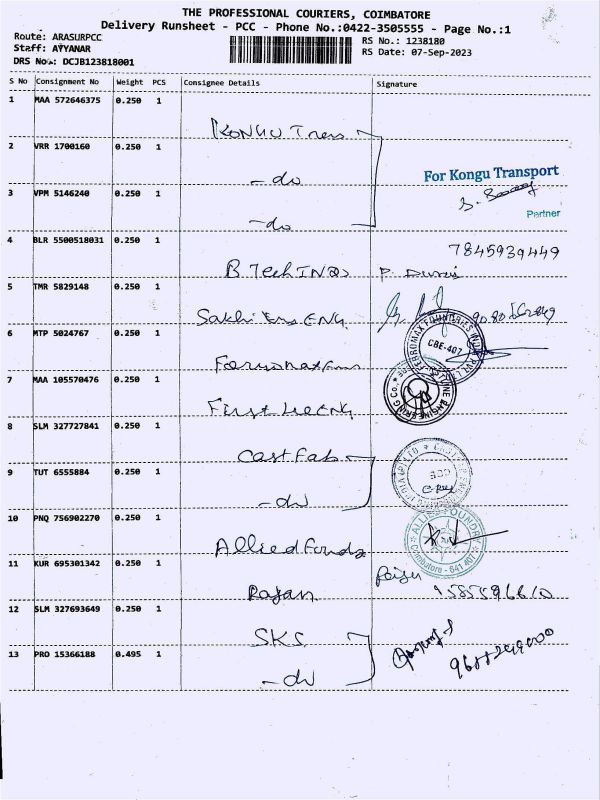 THE PROFESSIONAL COURIERS, COIMBATORE
Delivery Runsheet - PCC - Phone No.:0422-3505555 - Page No.:1
Route: ARASURPCC
RS No.: 1238180
Staff: AYYANAR
RS Date: 07-Sep-2023
DRS No.: DCJB123818001
S No Consignment No Weight PCS Consignee Details Signature
1 MAA 572646375 0.250 1
KONGU Trans
2 VRR 1700160 0.250 1
- do
For Kongu Transport
3 VPM 5146240 0.250 1
- do
Partner
4 BLR 5500518031 0.250 1
7845939449
B Tech INDs P. Durai
5 TMR 5829148 0.250 1
Sakhi Ens ENG
6 MTP 5024767 0.250 1
FERROMAX FOUNDRIES INDIA PVT LTD
CBE-407
7 MAA 105570476 0.250 1
ENGINEERING Co.
8 SLM 327727841 0.250 1
Cast Fab
9 TUT 6555884 0.250 1
- do
10 PNQ 756902270 0.250 1
ALLIED FOUNDRY
Coimbatore - 641 407
Allied Foundy
11 KUR 695301342 0.250 1
Rajan
12 SLM 327693649 0.250 1
SKS
13 PRO 15366188 0.495 1
- do